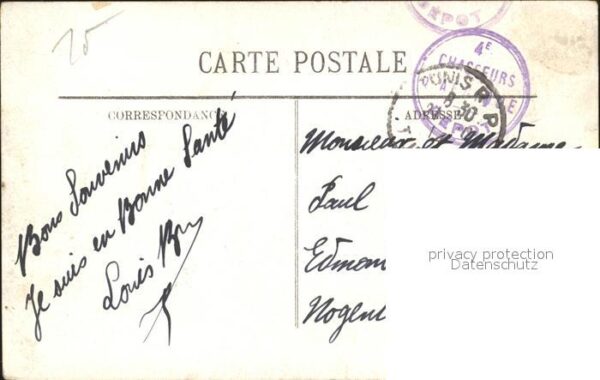 25
DÉPOT
4E
CHASSEURS
DÉPOT
TUNIS R.P
8 30
CARTE POSTALE
CORRESPONDANCE
ADRESSE
Bons Souvenirs
Je suis en Bonne Santé
Louis
Monsieur et Madame
Paul
Edmon
Nogen
privacy protection
Datenschutz